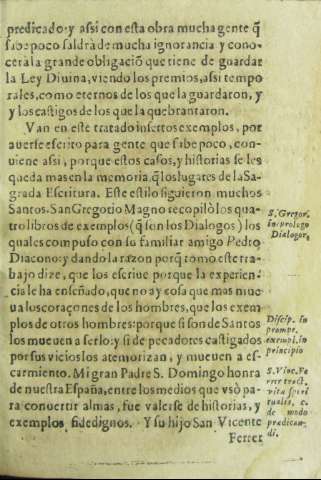 predicado: y assi con esta obra mucha gente q̃
sabe poco saldrà de mucha ignorancia y cono-
cerà la grande obligaciõ que tiene de guardar
la Ley Diuina, viendo los premios, assi tempo
rales, como eternos de los que la guardaron, y
y los castigos de los que la quebrantaron.
Van en este tratado insertos exemplos, por
auerse escrito para gente que sabe poco, con-
uiene assi, porque estos casos, y historias se les
queda mas en la memoria, q̃ los lugares de la Sa-
grada Escritura. Este estilo siguieron muchos
Santos. San Gregorio Magno recopilò los qua-
tro libros de exemplos (q̃ son los Dialogos) los
quales compuso con su familiar amigo Pedro
Diacono: y dando la razon porq̃ tomo este tra-
bajo dize, que los escriue porque la experien-
cia le ha enseñado, que no ay cosa que mas mue-
ua los coraçones de los hombres, que los exem
plos de otros hombres: porque si son de Santos
los mueuen a serlo: y si de pecadores castigados
por sus vicios los atemorizan, y mueuen a es-
carmiento. Mi gran Padre S. Domingo honra
de nuestra España, entre los medios que vsò pa-
ra conuertir almas, fue valerse de historias, y
exemplos fidedignos. Y su hijo San Vicente
Ferrer
S. Gregor.
in prologo
Dialogor.
Discip. in
prompt.
exempl. in
principio
S. Vinc. Fe
rrer tract.
vita spiri
tualis, c.
de modo
predican-
di.